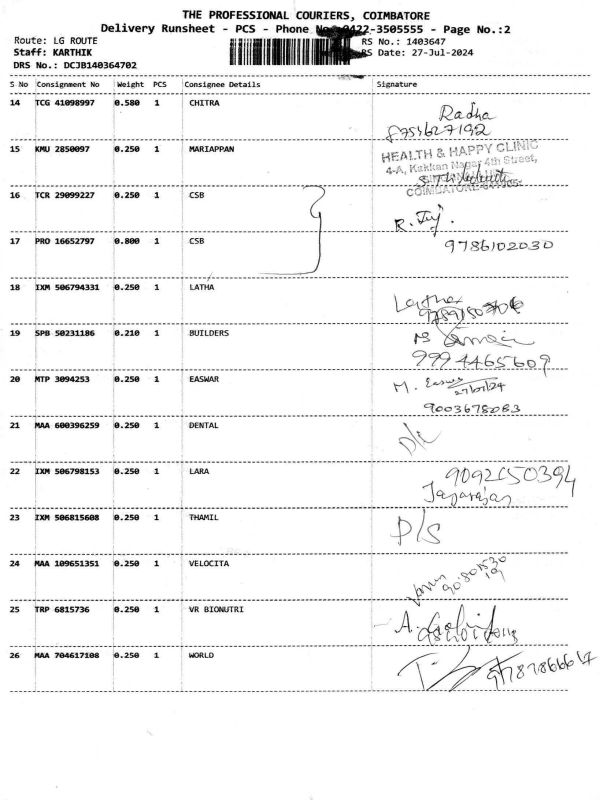 THE PROFESSIONAL COURIERS, COIMBATORE
Delivery Runsheet - PCS - Phone No.:0422-3505555 - Page No.:2
Route: LG ROUTE RS No.: 1403647
Staff: KARTHIK RS Date: 27-Jul-2024
DRS No.: DCJB140364702
S No Consignment No Weight PCS Consignee Details Signature
14 TCG 41098997 0.580 1 CHITRA
Radha
15 KMU 2850097 0.250 1 MARIAPPAN
HEALTH & HAPPY CLINIC
4-A, Kakkan Nagar 4th Street,
16 TCR 29099227 0.250 1 CSB
R.
17 PRO 16652797 0.800 1 CSB
9786102030
18 IXM 506794331 0.250 1 LATHA
Latha
19 SPB 50231186 0.210 1 BUILDERS
9994465609
20 MTP 3094253 0.250 1 EASWAR
M. Easwar
27/07/24
9003678083
21 MAA 600396259 0.250 1 DENTAL
D/L
22 IXM 506798153 0.250 1 LARA
9092650394
Jayarajan
23 IXM 506815608 0.250 1 THAMIL
D/S
24 MAA 109651351 0.250 1 VELOCITA
25 TRP 6815736 0.250 1 VR BIONUTRI
A.
26 MAA 704617108 0.250 1 WORLD